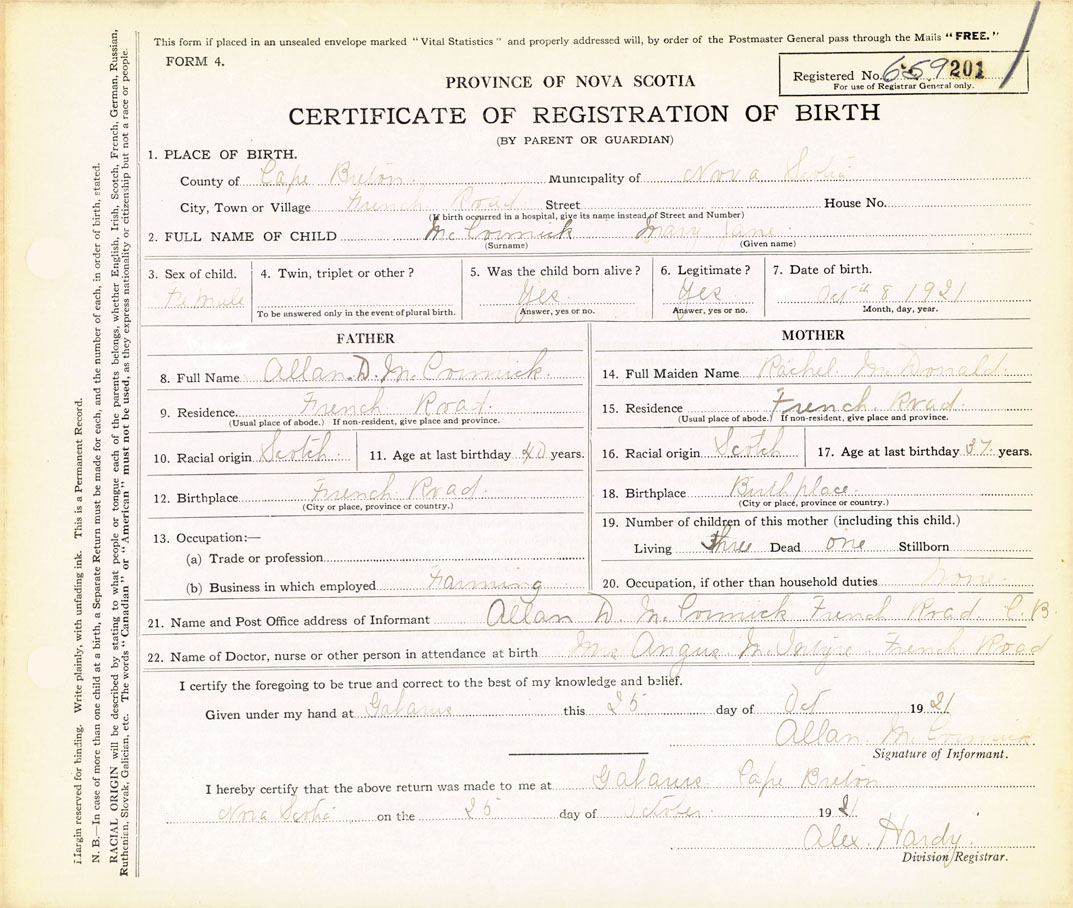 This form if placed in an unsealed envelope marked "Vital Statistics" and properly addressed will, by order of the Postmaster General pass through the Mails "FREE."
FORM 4.
Registered No. 659 201
For use of Registrar General only.
PROVINCE OF NOVA SCOTIA
CERTIFICATE OF REGISTRATION OF BIRTH
(BY PARENT OR GUARDIAN)
1. PLACE OF BIRTH.
County of Cape Breton Municipality of Nova Scotia
City, Town or Village French Road Street House No.
(If birth occurred in a hospital, give its name instead of Street and Number)
2. FULL NAME OF CHILD McCormick Mary Jane
(Surname) (Given name)
3. Sex of child. 4. Twin, triplet or other? 5. Was the child born alive? 6. Legitimate? 7. Date of birth.
Female Yes Yes Octth 8 1921
To be answered only in the event of plural birth. Answer, yes or no. Answer, yes or no. Month, day, year.
FATHER
8. Full Name Allan D. McCormick
9. Residence French Road
(Usual place of abode.) If non-resident, give place and province.
10. Racial origin Scotch 11. Age at last birthday 40 years.
12. Birthplace French Road
(City or place, province or country.)
13. Occupation:—
(a) Trade or profession
(b) Business in which employed Farming
MOTHER
14. Full Maiden Name Rachel McDonald
15. Residence French Road
(Usual place of abode.) If non-resident, give place and province.
16. Racial origin Scotch 17. Age at last birthday 37 years.
18. Birthplace Birthplace
(City or place, province or country.)
19. Number of children of this mother (including this child.)
Living three Dead one Stillborn
20. Occupation, if other than household duties none
21. Name and Post Office address of Informant Allan D. McCormick French Road C.B
22. Name of Doctor, nurse or other person in attendance at birth Mrs Angus McIntyre French Road
I certify the foregoing to be true and correct to the best of my knowledge and belief.
Given under my hand at Gabarus this 25 day of Oct 1921
Allan McCormick
Signature of Informant.
I hereby certify that the above return was made to me at Gabarus Cape Breton
Nova Scotia on the 25 day of October 1921
Alex. Hardy
Division Registrar.
Margin reserved for binding. Write plainly, with unfading ink. This is a Permanent Record.
N. B.—In case of more than one child at a birth, a Separate Return must be made for each, and the number of each, in order of birth, stated.
RACIAL ORIGIN will be described by stating to what people or tongue each of the parents belongs, whether English, Irish, Scotch, French, German, Russian,
Ruthenian, Slovak, Galician, etc. The words "Canadian" or "American" must not be used, as they express nationality or citizenship but not a race or people.